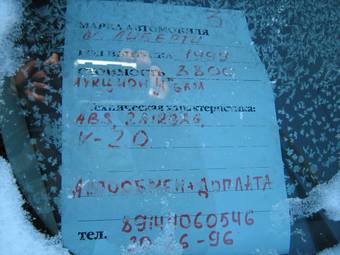 МАРКА АВТОМОБИЛЯ
Н. ЛИБЕРТИ
ГОД ВЫПУСКА. 1999
СТОИМОСТЬ 3800
АУКЦИОН БАЛЛ
Техническая характеристика:
V-2.0
АВТООБМЕН+ДОПЛАТА
89144060546
тел. 20-16-96